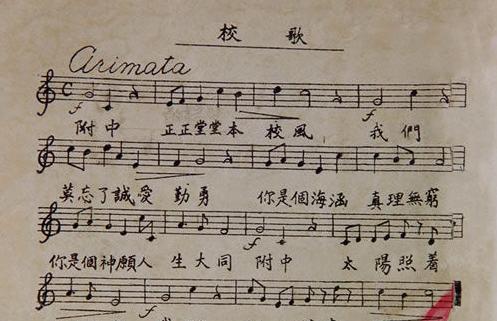 校歌
Arimata
附中 正正堂堂本 校風 我們
莫忘了誠愛 勤勇 你是個海涵 真理無窮
你是個神願人 生大同 附中 太陽照着